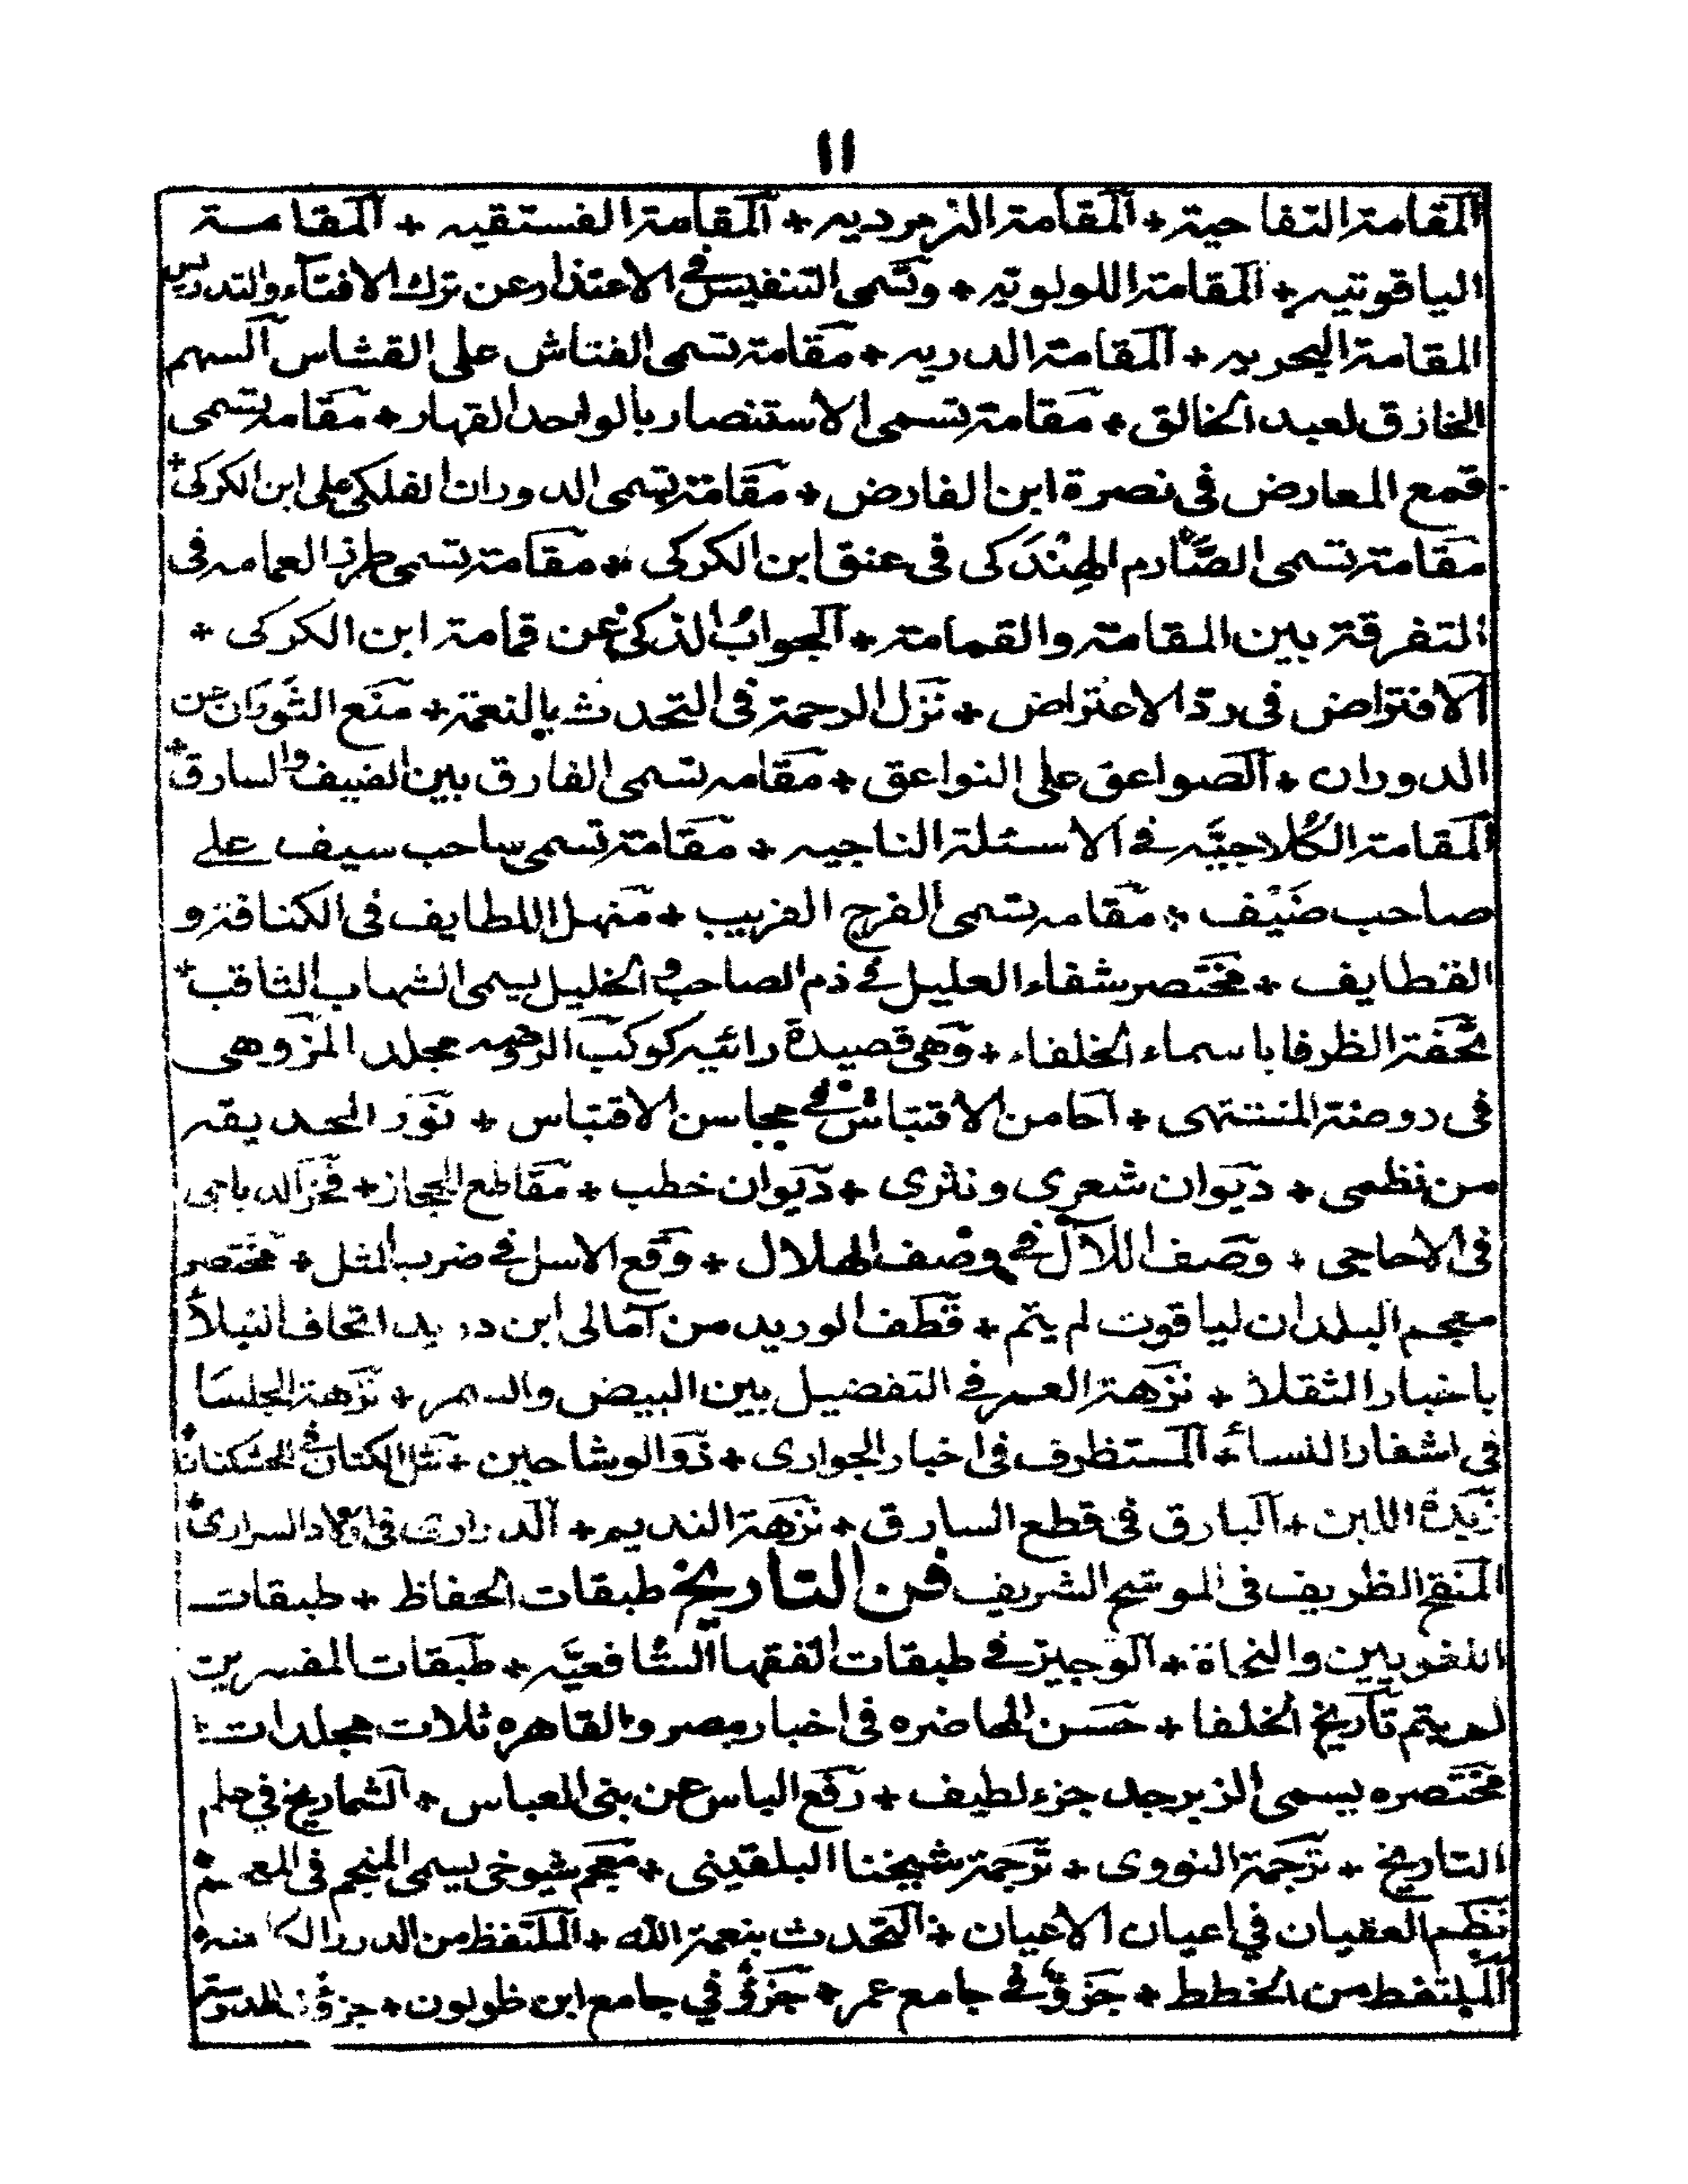 ١١
المقامة التفاحية + المقامة الزمرديه + المقامة الفستقيه + المقامة
الياقوتيه + المقامة اللولويه + وتسمى التنفيس فى الاعتذار عن ترك الافتاء والتدريس
المقامة البحريه + المقامة الدريه + مقامة تسمى الفتاش على القشاس السهم
الخارق لعبد الخالق + مقامة تسمى الاستنصار بالواحد القهار + مقامه تسمى
قمع المعارض فى نصرة ابن الفارض + مقامة تسمى الدوران الفلكى على ابن الكركى +
مقامة تسمى الصَّارم الهِنْدَكى فى عنق ابن الكركى + مقامة تسمى طرز العمامه فى
التفرقة بين المقامة والقمامة + الجوابُ الذكى عن قمامة ابن الكركى +
الافتراض فى ردّ الاعتراض + نزل الرحمة فى التحدث بالنعمة + منع الثوران عن
الدوران + الصواعق على النواعق + مقامه تسمى الفارق بين الضيف والسارق +
المقامة الكُلاجيَّه فى الاسئلة الناجيه + مقامة تسمى ساحب سيف على
صاحب ضَيْف + مقامه تسمى الفرج القريب + منهل اللطايف فى الكنافة و
القطايف + مختصر شفاء العليل فى ذم الصاحب و الخليل يسمى الشهاب الثاقب +
تحفة الظرفا باسماء الخلفاء + وهى قصيدة رائيه كوكب الروضه مجلد المزوهى
فى روضة المشتهى + احاسن الاقتباس فى محاسن الاقتباس + نور الحديقه
من نظمى + ديوان شعرى و نثرى + ديوان خطب + مقاطع الحجاز + فخر الدياجى
فى الاحاجى + وصف اللآل فى وصف الهلال + وقع الاسل فى ضرب المثل + مختصر
معجم البلدان لياقوت لم يتم + قطف الوريد من آمالى ابن دريد اتحاف النبلاً
باخبار الثقلا + نزهة العمر فى التفضيل بين البيض والسمر + نزهة الجلسا
فى اشعار النسأ + المستظرف فى اخبار الجوارى + ذو الوشاحين + نثل الكتان فى الخشكنان +
زبدة اللبن + البارق فى قطع السارق + نزهة النديم + الدرارى فى اولاد السرارى +
المنقح الظريف فى الموشح الشريف فن التاريخ طبقات الحفاظ + طبقات
اللغويين والنحاة + الوجيز فى طبقات الفقها الشافعيَّه + طبقات المفسرين
لم يتم تاريخ الخلفا + حسن المحاضره فى اخبار مصر والقاهره ثلاث مجلدات +
مختصره يسمى الزبرجد جزء لطيف + رفع الباس عن بنى العباس + الشماريخ فى علم
التاريخ + ترجمة النووى + ترجمة شيخنا البلقينى + معجم شيوخى يسمى المنجم فى المعجم +
نظم العقيان فى اعيان الاعيان + التحدث بنعمة الله + الملتقط من الدرر الكامنه
الملتقط من الخطط + جزؤ فى جامع عمر + جزؤ فى جامع ابن طولون + جزؤ المدرسة